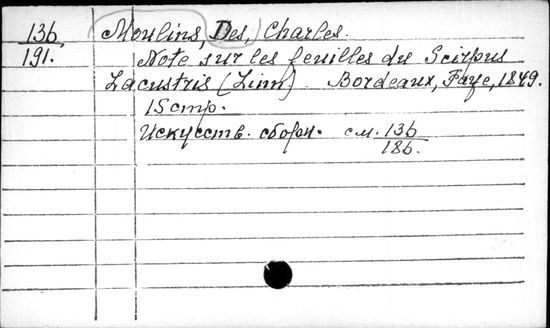 136
191.
Moulins, Des, Charles.
Note sur les feuilles du Scirpus
Lacustris (Linn) Bordeaux, Faye, 1849.
15 стр.
Искусств. сборн. см. 136
186.